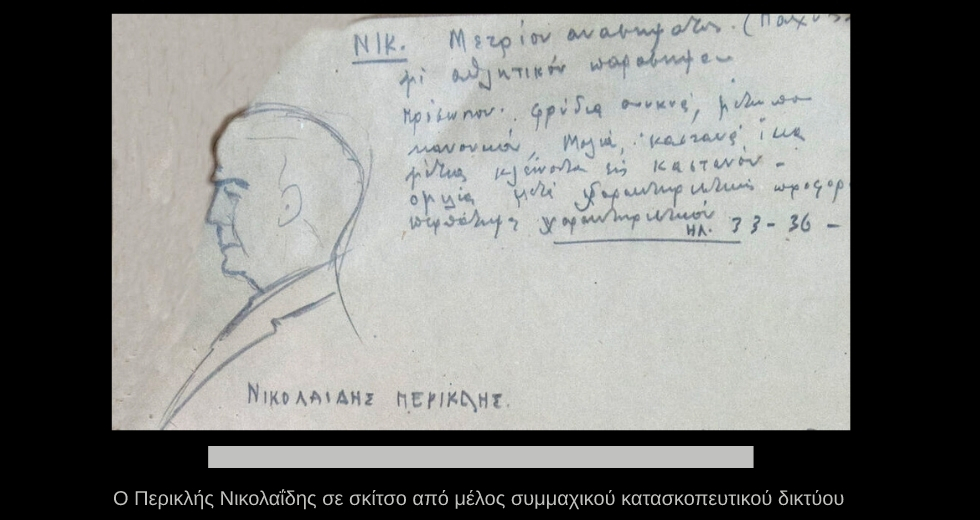 ΝΙΚ. Μετρίου αναστήματος. (Παχ
μέ αθλητικόν παράστημα
πρόσωπον. φρύδια πυκνά, μέτωπο
κανονικόν, Μαλιά, καστανά
κλείνοντα είς καστανόν -
ομιλία μετά χαρακτηριστικής προφορ
περπάτημα χαρακτηριστικόν
ΗΛ. 33-36 -
ΝΙΚΟΛΑΙΔΗΣ ΠΕΡΙΚΛΗΣ.
Ο Περικλής Νικολαΐδης σε σκίτσο από μέλος συμμαχικού κατασκοπευτικού δικτύου